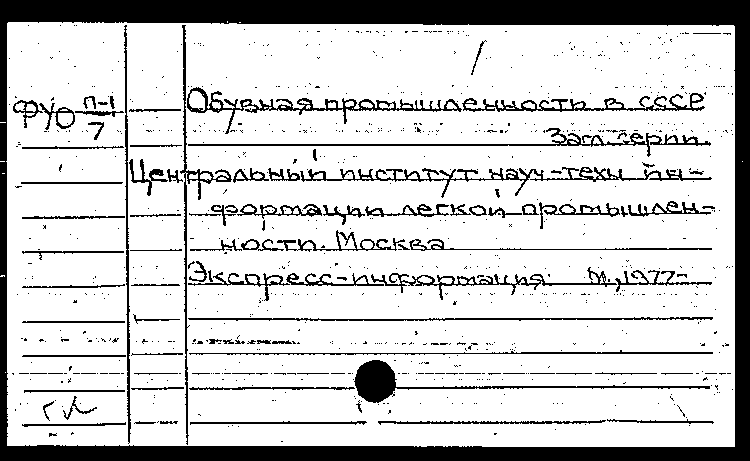 ФУО П-1/7 Обувная промышленность в СССР
Загл. серии.
Центральный институт науч-техн ин-
формации легкой промышлен-
ности. Москва.
Экспресс-информация. М., 1977-